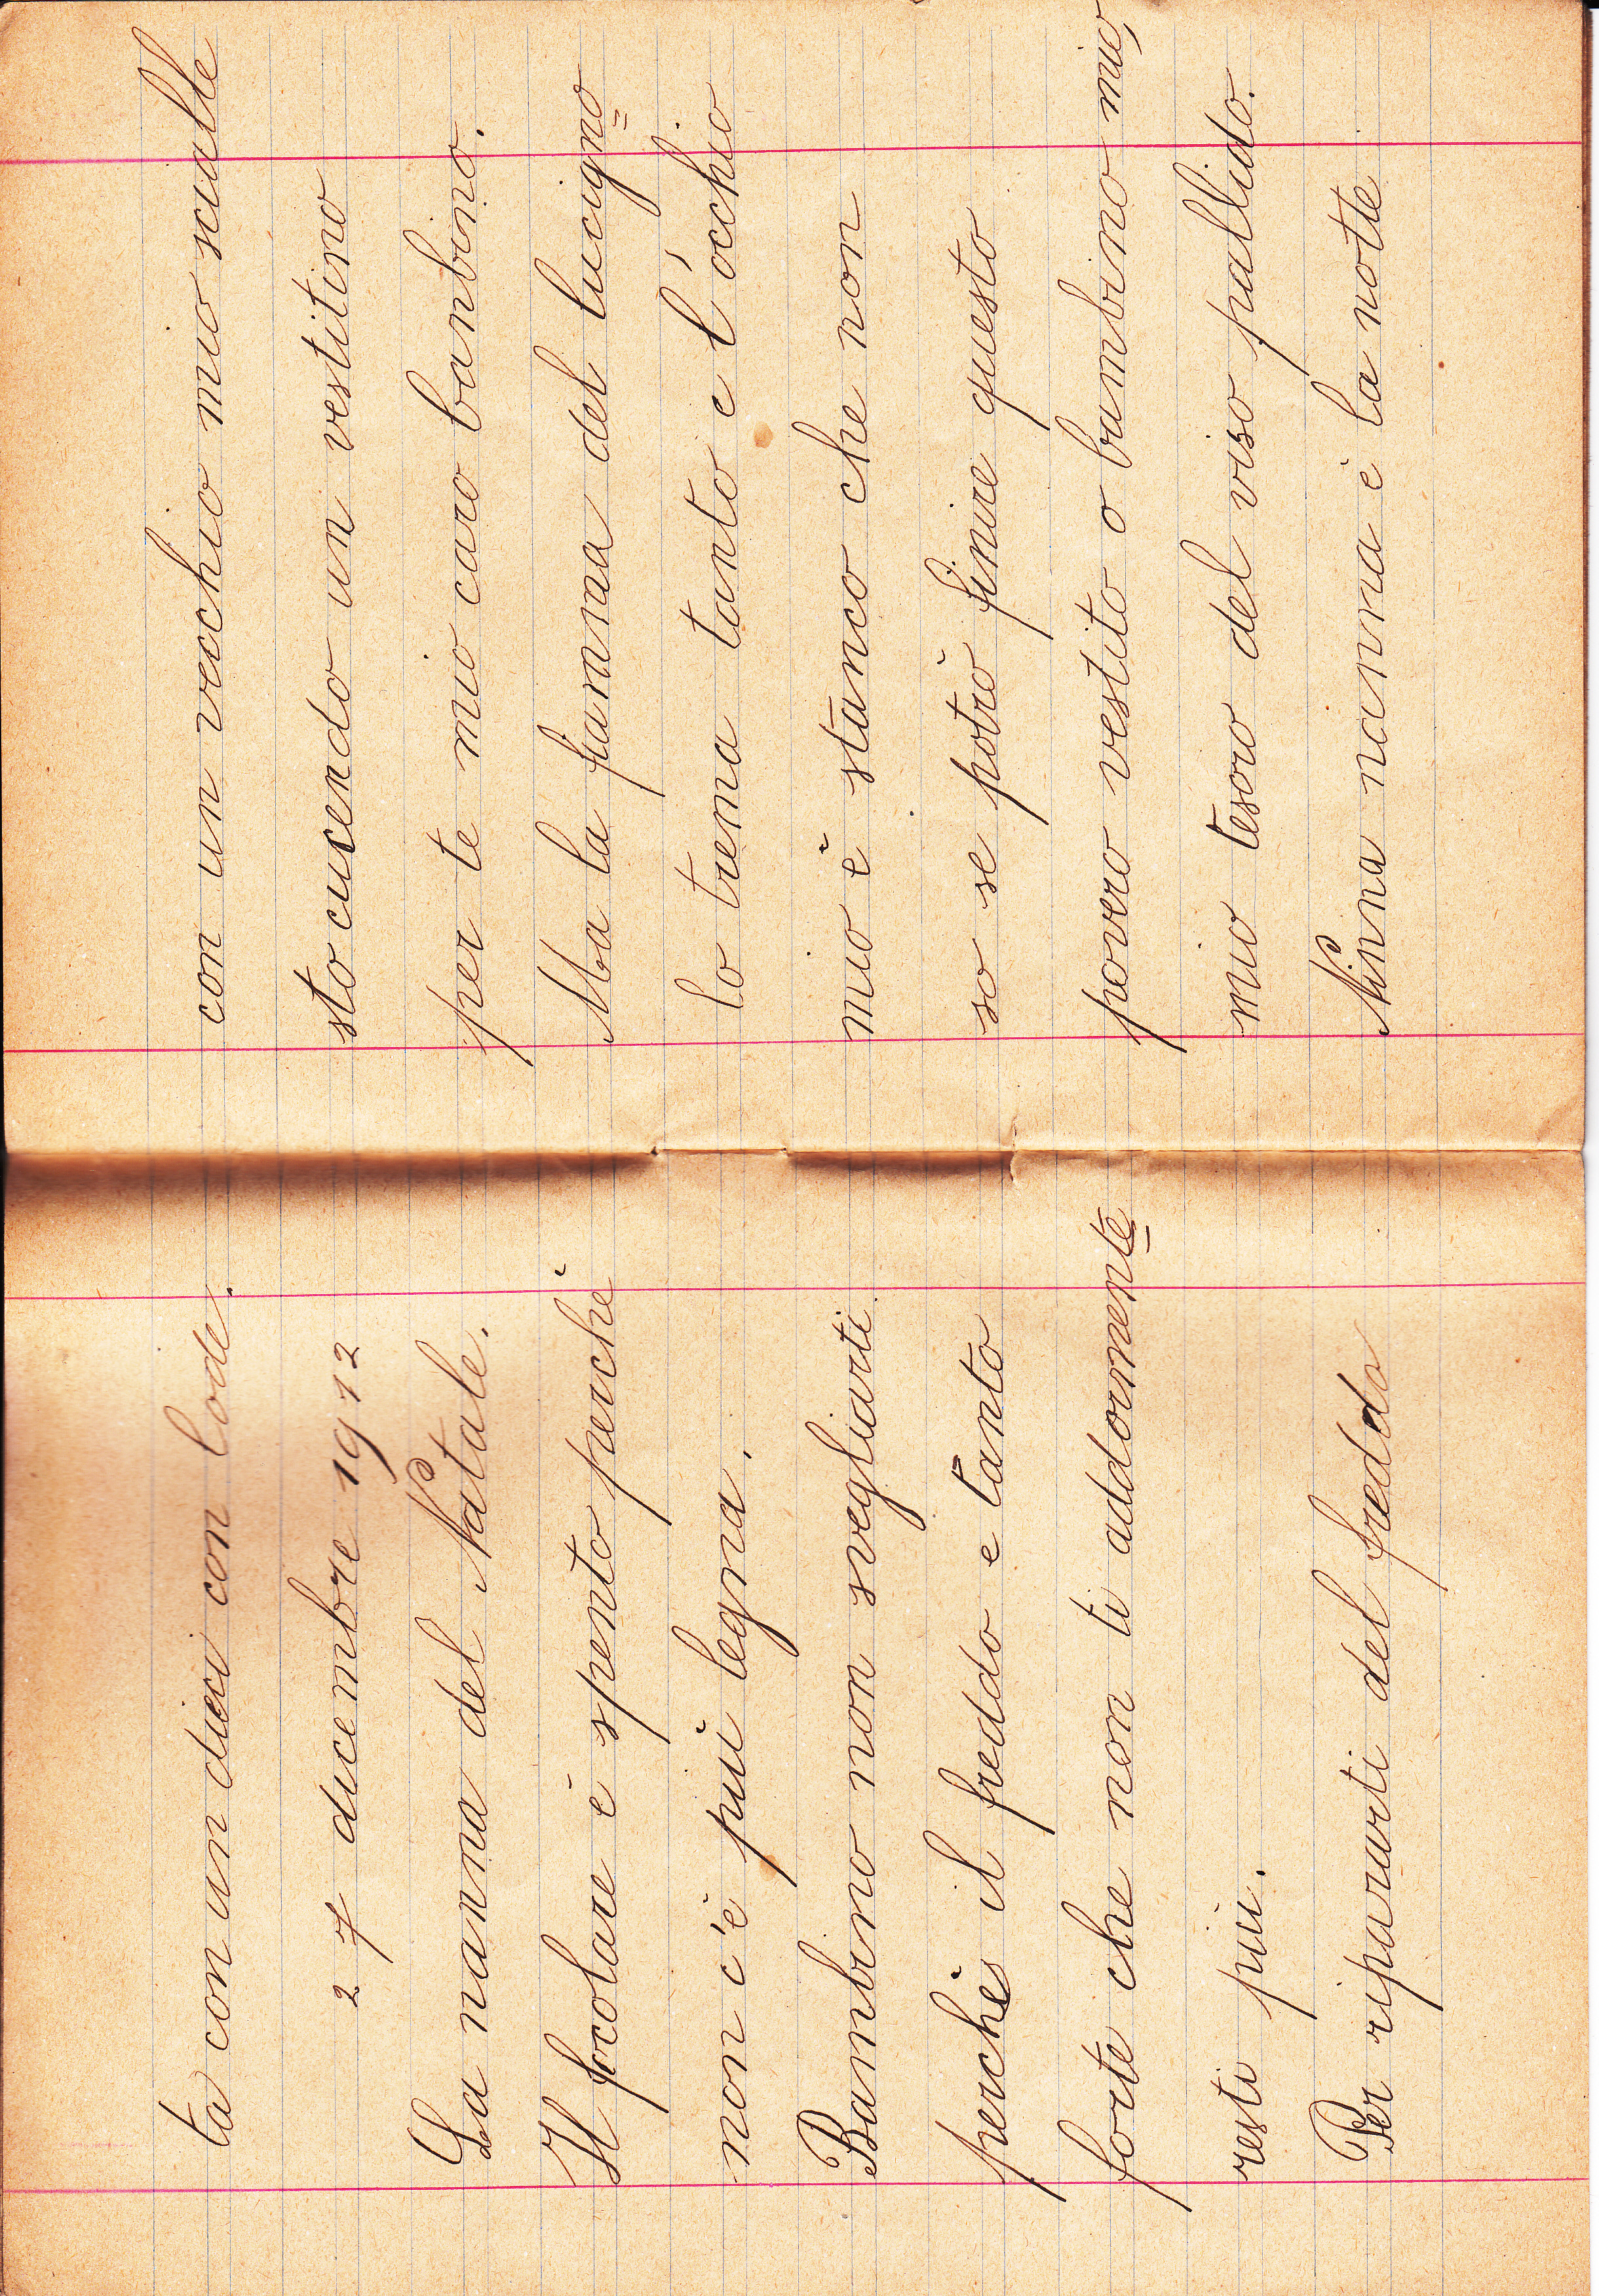 ta con un dieci con lode.
27 dicembre 1912
La nanna del Natale.
Il focolare è spento perchè
non c'è più legna.
Bambino non svegliarti
perchè il freddo e tanto
forte che non ti addormente
resti più.
Per ripararti del freddo
con un vecchio mio scialle
sto cucendo un vestitino
per te mio caro banbino.
Ma la fiamma del lucigno=
lo trema tanto e l'occhio
mio è stanco che non
so se potrò finire questo
povero vestito o bambino mio,
mio tesoro del viso pallido.
Ninna nanna è la notte